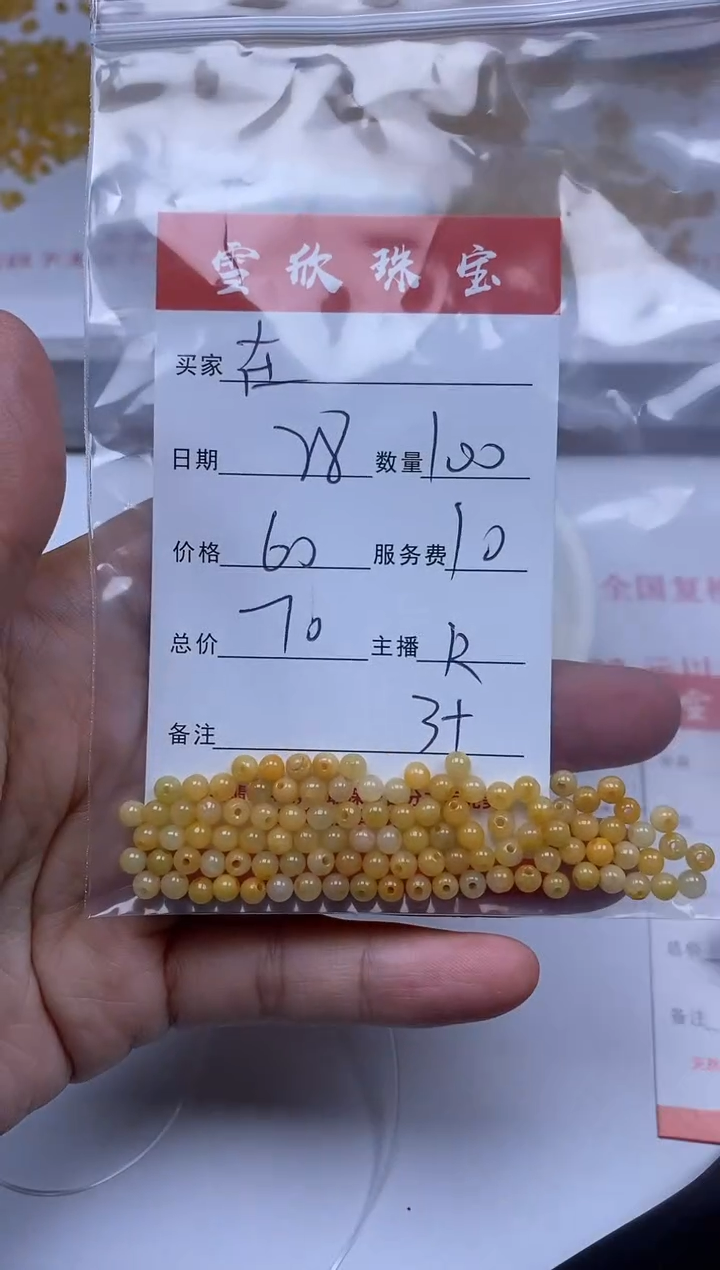 雪欣珠宝
买家 在
日期 28 数量 100
价格 60 服务费 10
总价 70 主播 R
备注 3+
全国复检
备注